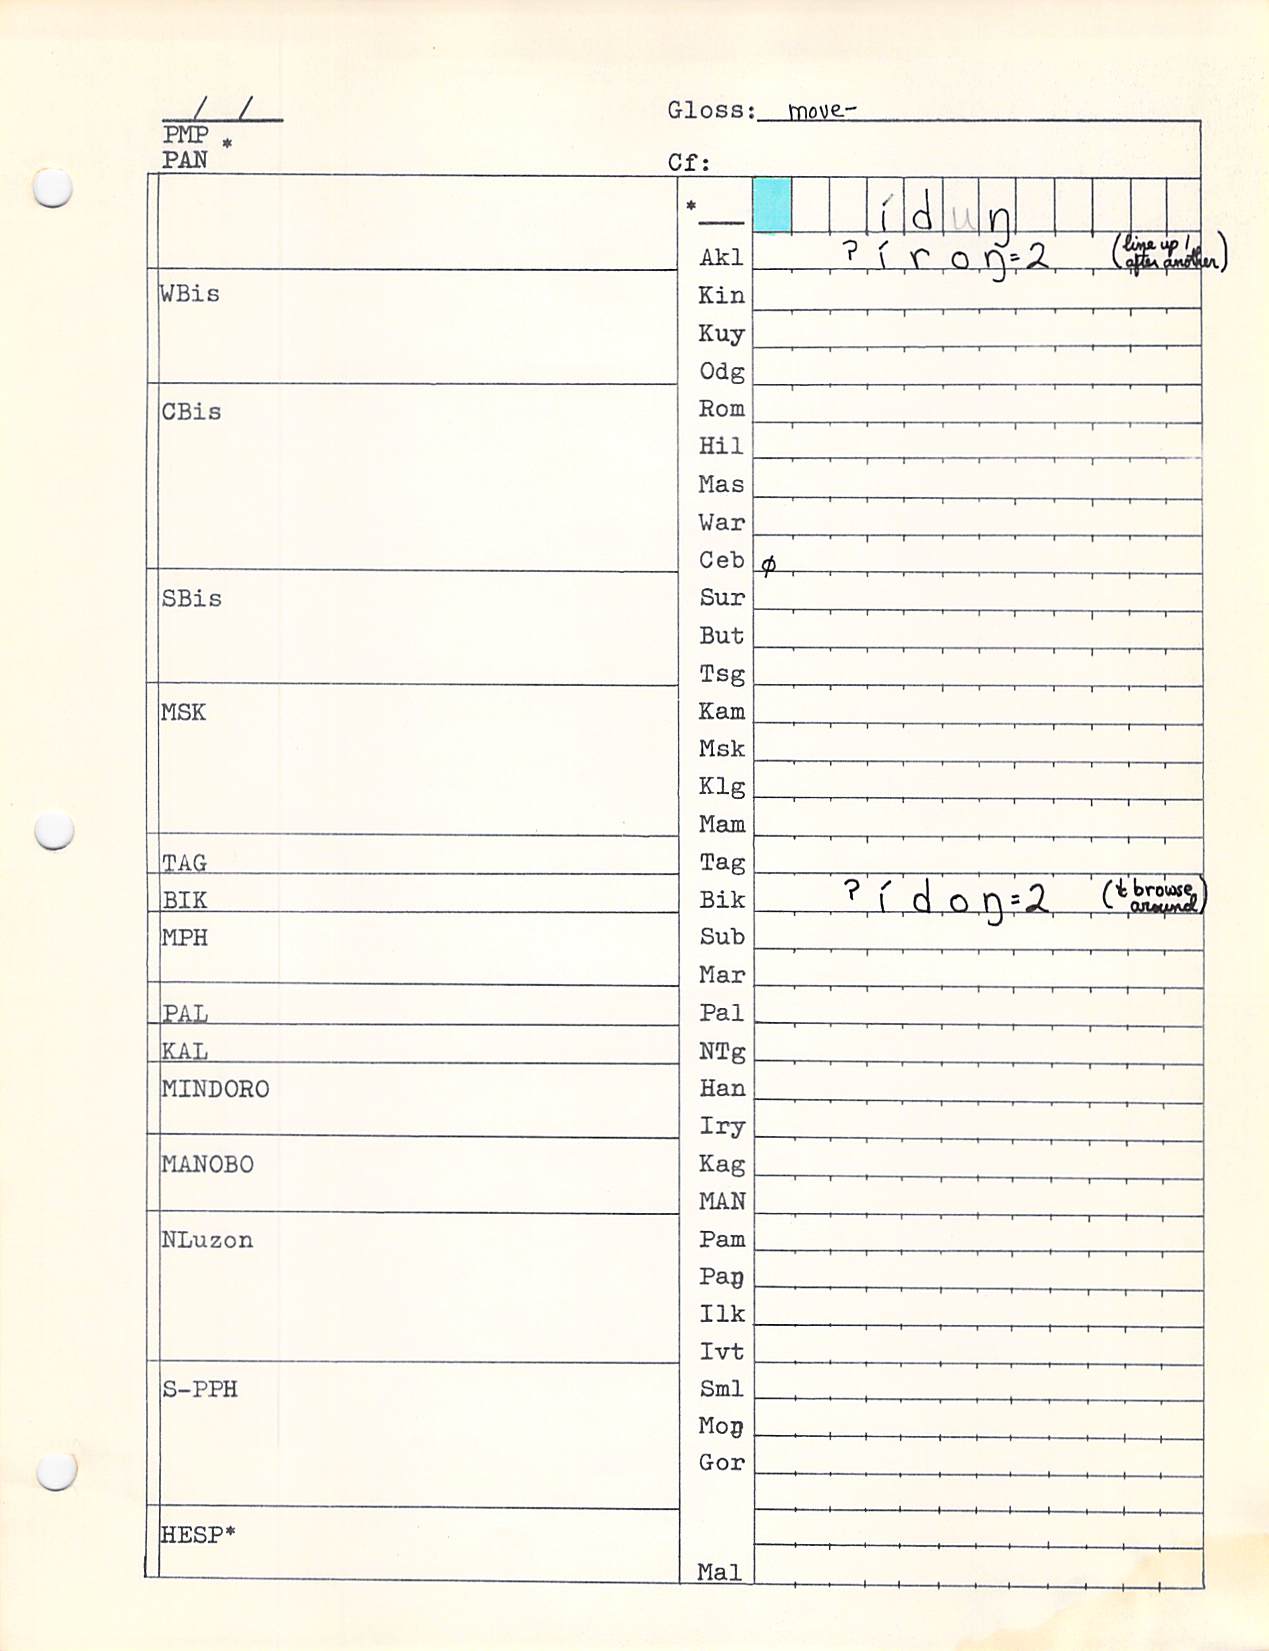 / /
Gloss: move-
PMP *
PAN
Cf:
* íduŋ
Akl ʔíroŋ=2 (line up 1 after another)
WBis
Kin
Kuy
Odg
CBis
Rom
Hil
Mas
War
Ceb ∅
SBis
Sur
But
Tsg
MSK
Kam
Msk
Klg
Mam
TAG
Tag
BIK
Bik ʔídoŋ=2 (t browse around)
MPH
Sub
Mar
PAL
Pal
KAL
NTg
MINDORO
Han
Iry
MANOBO
Kag
MAN
NLuzon
Pam
Paŋ
Ilk
Ivt
S-PPH
Sml
Moŋ
Gor
HESP*
Mal